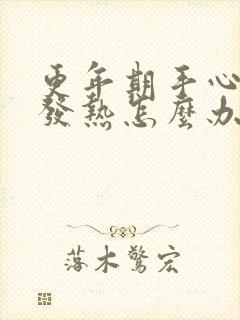 更年期手心
發熱怎麼办
落木驚宏